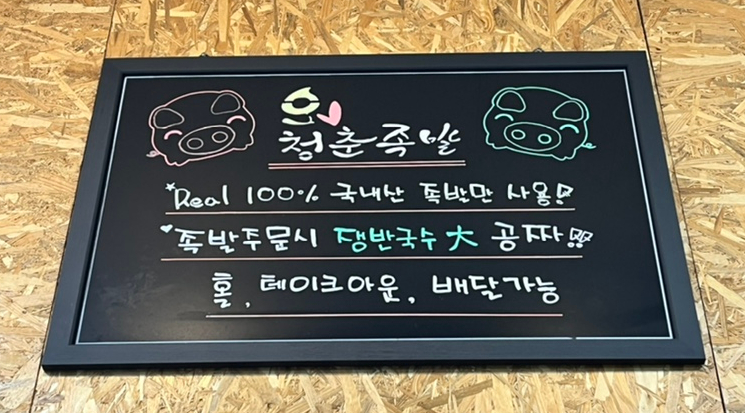 청춘족발
*Real 100% 국내산 족발만 사용!
♥족발주문시 쟁반국수 大 공짜!!
홀, 테이크아웃, 배달가능